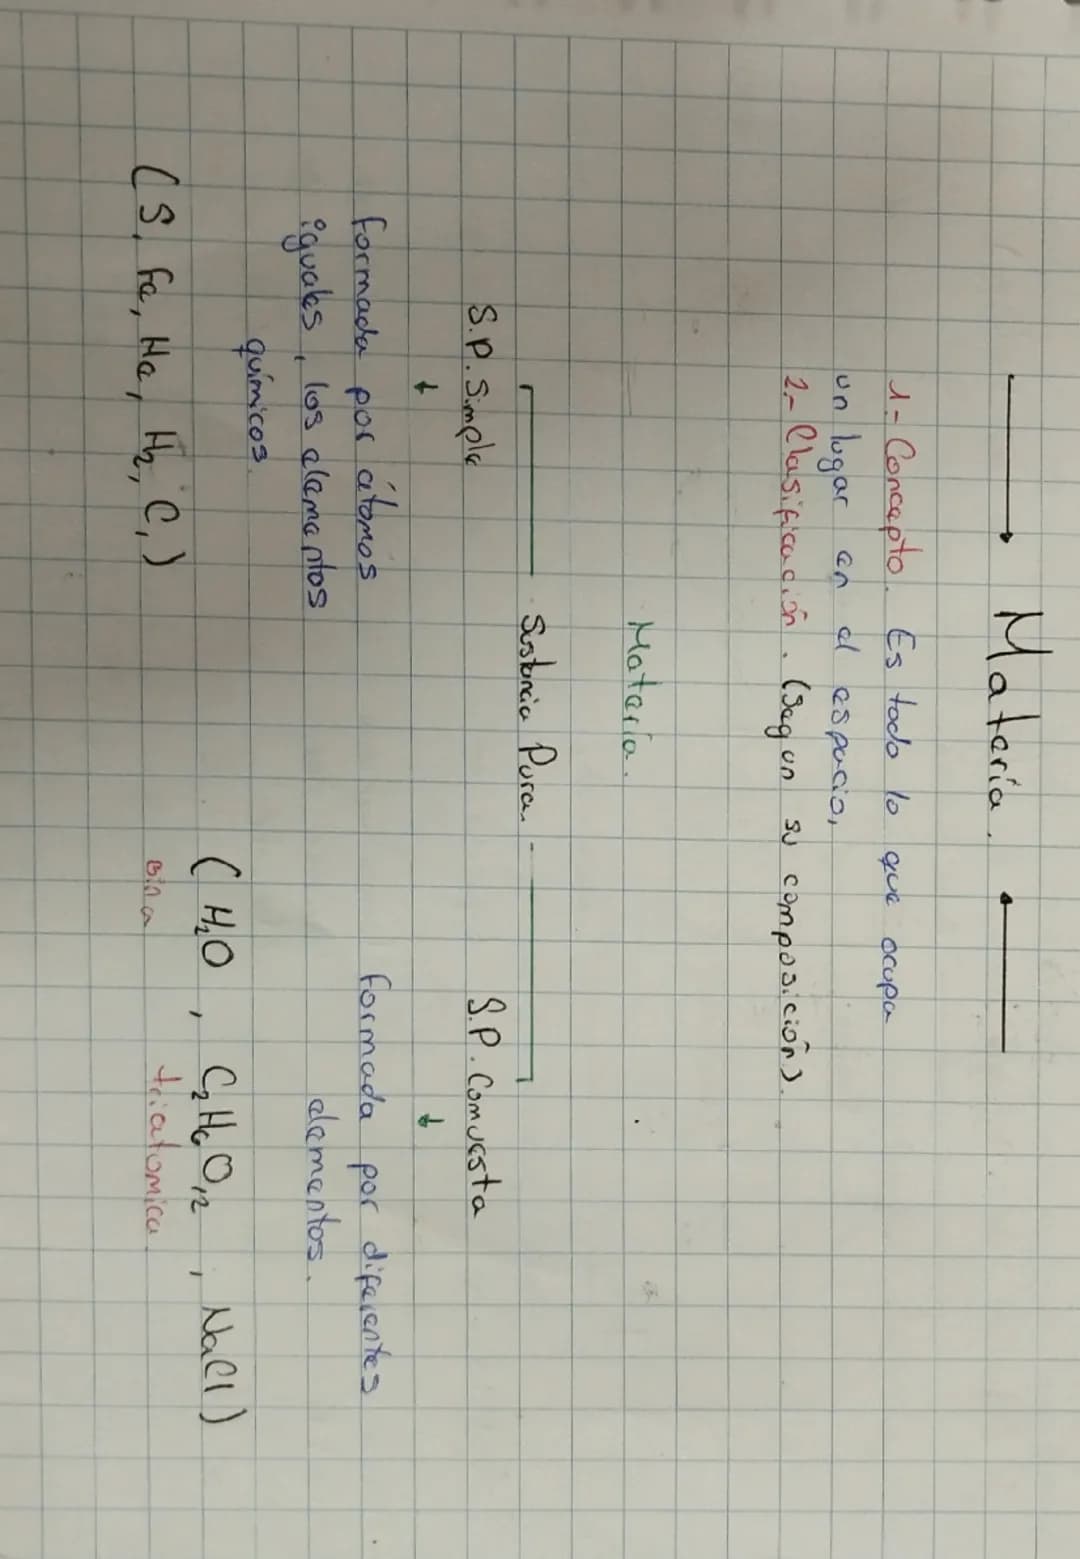 Materia.
1.- Concepto. Es todo lo que ocupa
un lugar en el espacio,
2.- Clasificación. (Segun su composición).
Materia.
Sustancia Pura.
S.P. Simple
S.P. Comuesta
formada por átomos
iguales, los elementos
químicos.
formada por diferentes
elementos.
(S, Fe, He, H₂, C,)
(H₂O, C₂H₆O₁₂, NaCl)
Bina triatomica